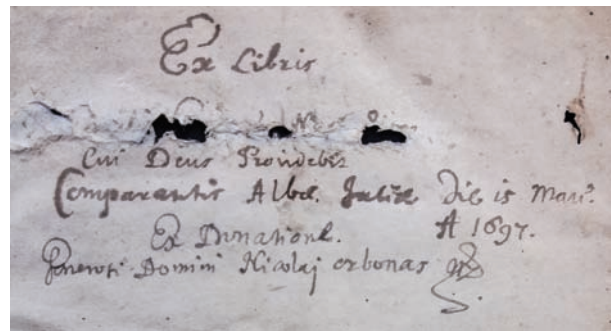 Ex Libris
Cui Deus Providebit
Comparantis Albæ Juliæ Die is
Ex Donatione. A 1697.
Domini Nicolaj orbonas